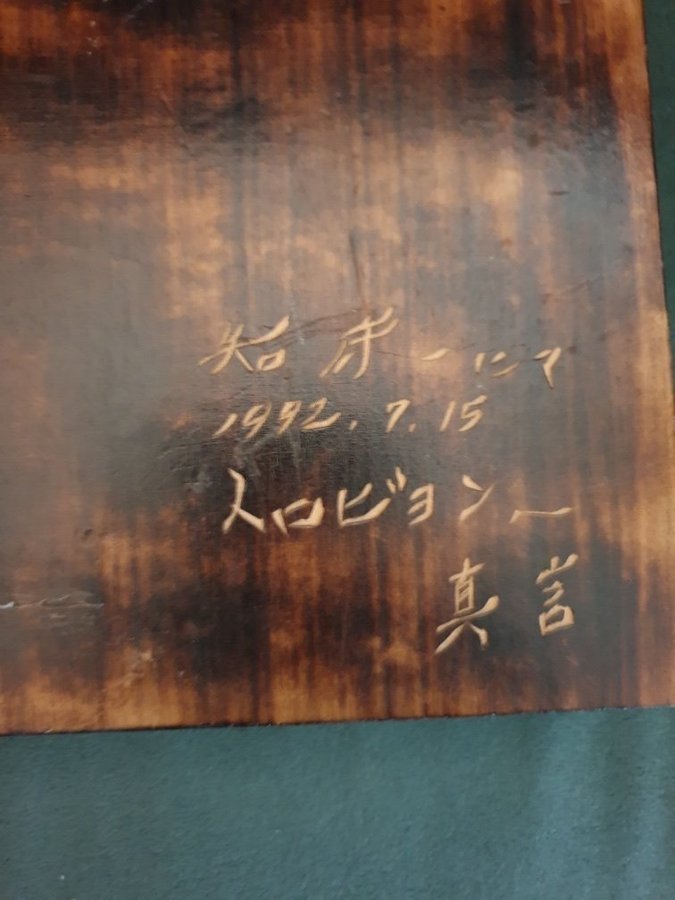 知床ーにて
1992.7.15
人ロビヨンー
真